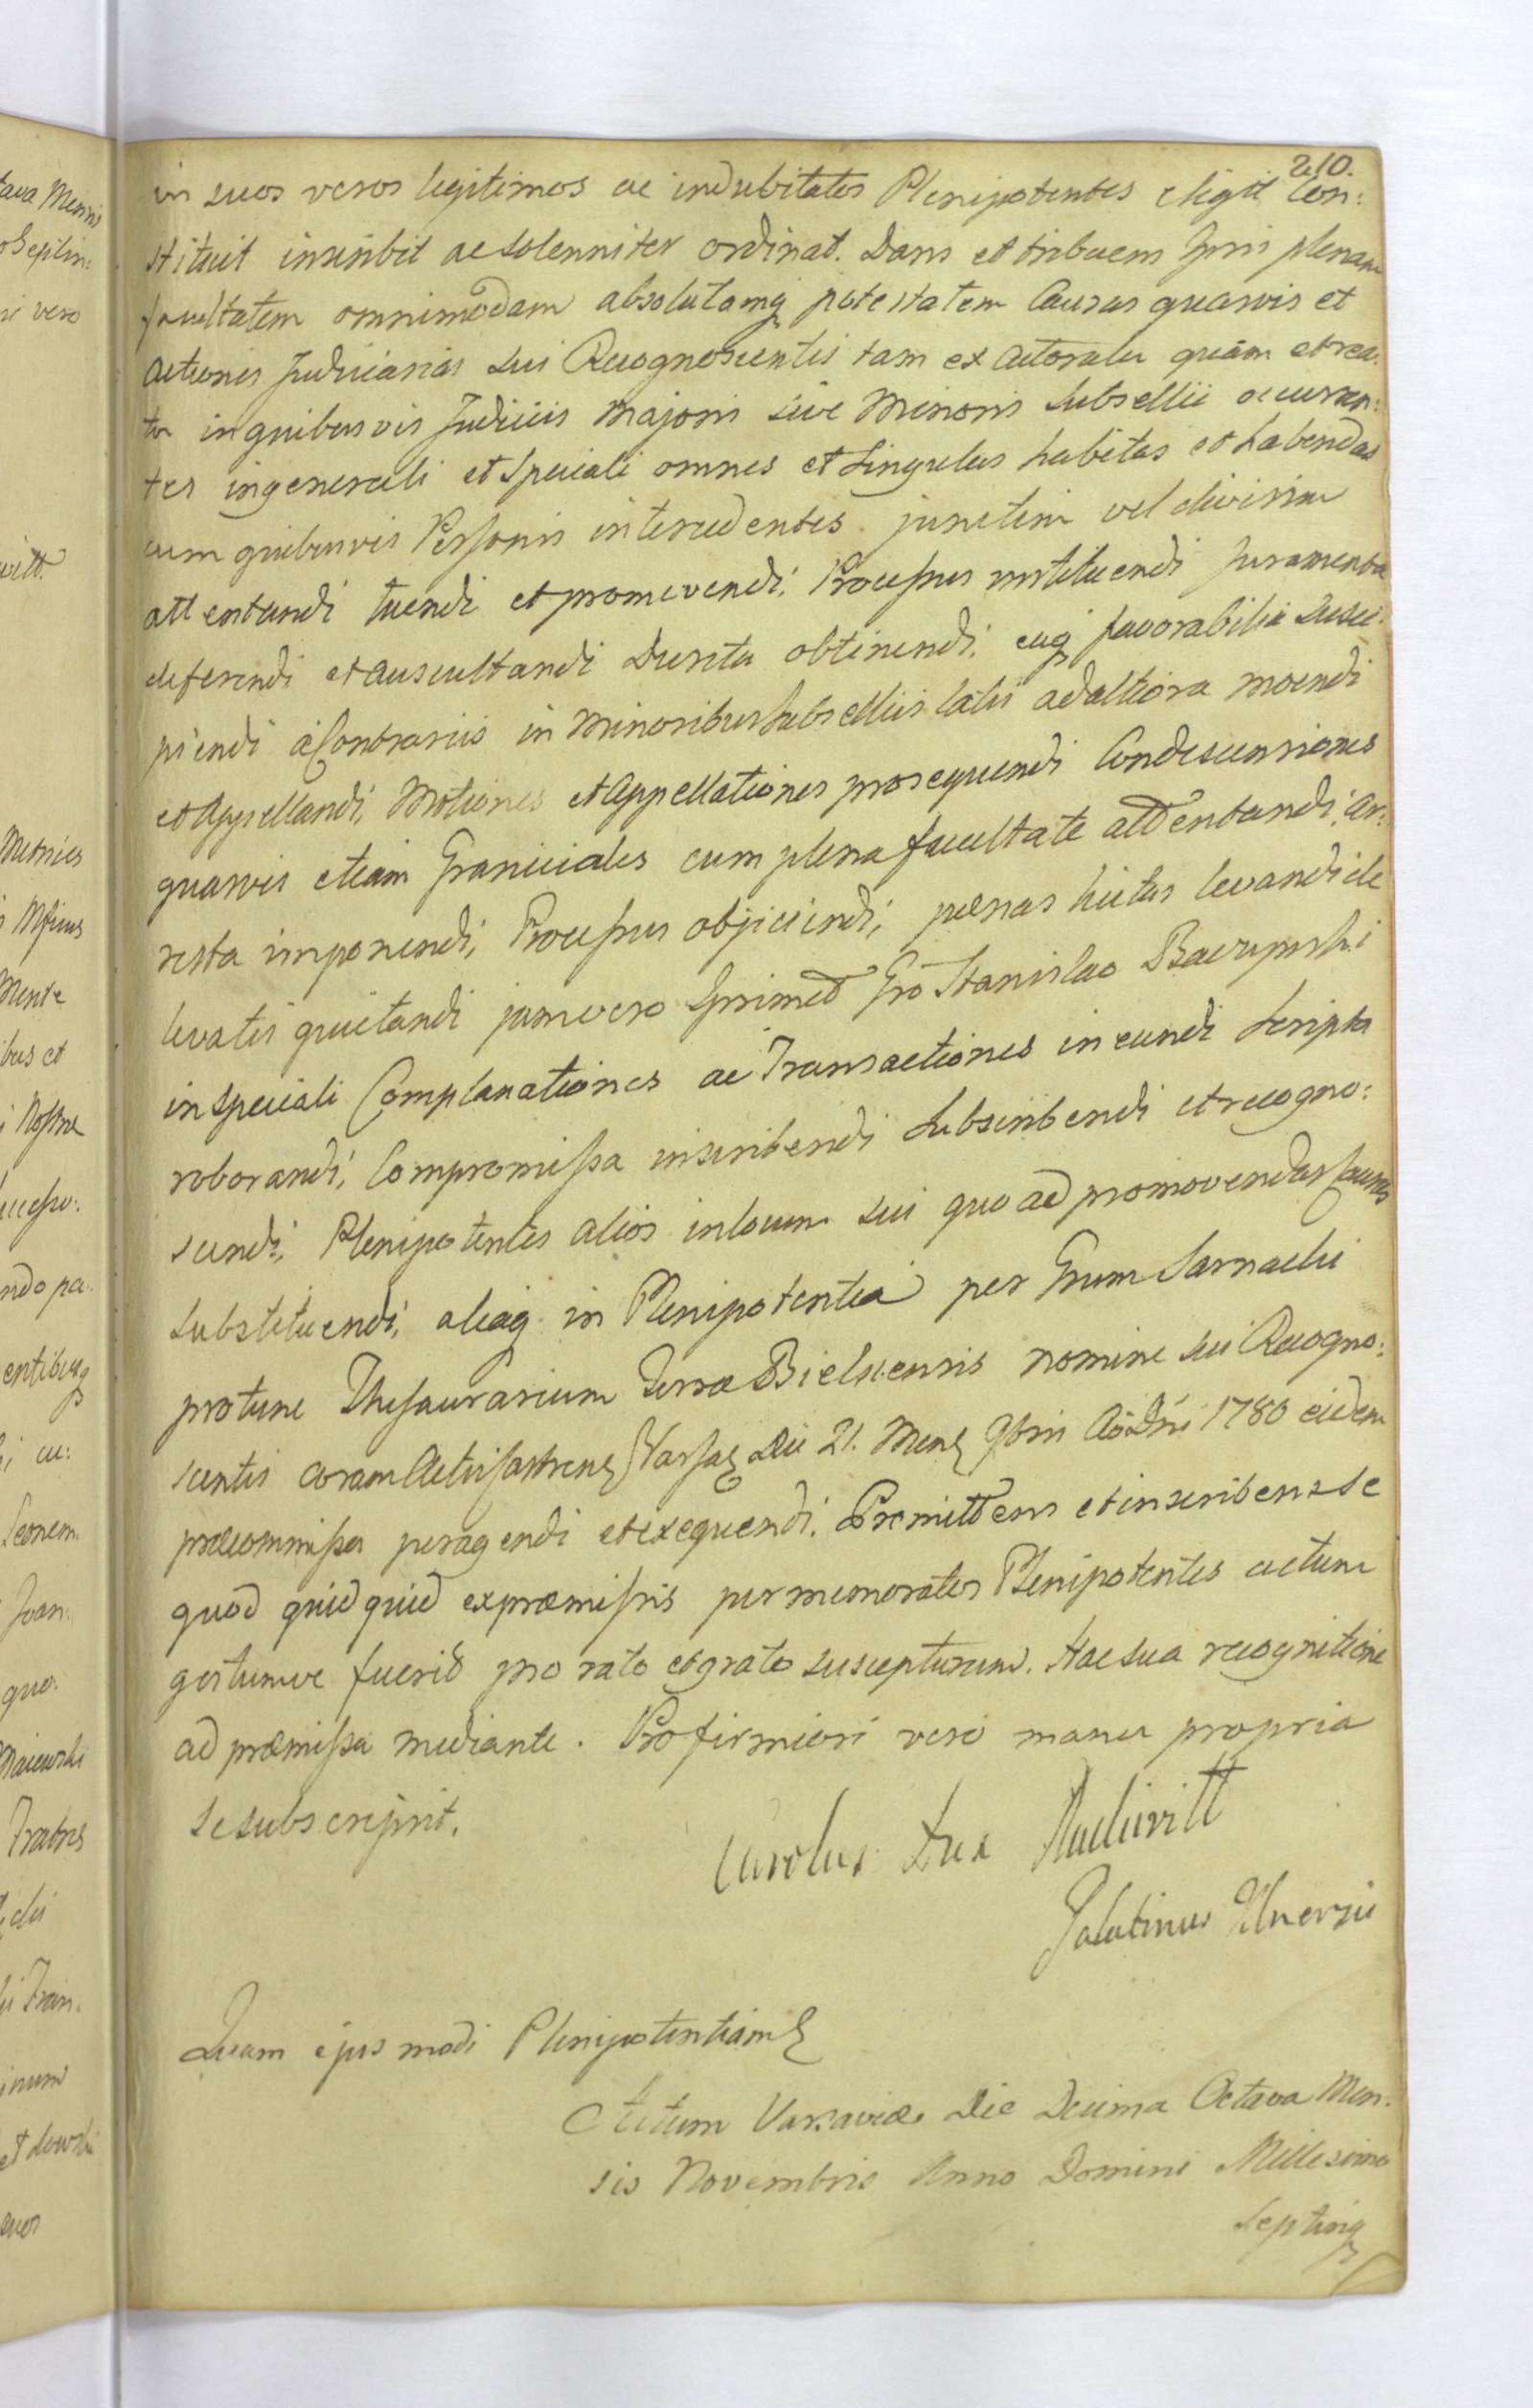 210.
in suos veros legitimos ac indubitatos Plenipotentes eligit Con:
stituit inscribit ac Solenniter ordinat. Dans et tribuens Ipsis plenam
facultatem omnimodam absolutamq potestatem Causas quasvis et
actiones Judiciarias sui Recognoscentis tam ex actoratu quàm et rea:
tu in quibusvis Judiciis Majoris sive Minoris Subsellii occurren:
tes in generali et Speciali omnes et Singulas habitas et habendas
cum quibusvis Personis intercedentes junctim vel divisim
attentandi tuendi et promovendi, Processus instituendi Juramenta
deferendi et auscultandi Decreta obtinendi, eaq favorabilia Susci:
piendi à Contrariis in Minoribus Subselliis latis ad altiora movendi
et Appellandi, Motiones et Appellationes prosequendi Condescensiones
quasvis etiam Graniciales cum plena facultate attentandi, Ar:
resta imponendi, Processus objiciendi, pænas luitas levandi de
levatis quietandi jam vero Sprimet Gro Stanislao Baczynski
in Speciali Complanationes ac Transactiones ineundi Scripta
roborandi, Compromissa inscribendi Subscribendi et recogno:
scendi, Plenipotentes alios in locum sui quo ad promovendas Causas
Substituendi, aliaq in Plenipotentia per Grum Sarnacki
protunc Thesaurarium Terræ Bielscensis nomine sui Recogno:
scentis coram Actis Castren Varsa Die 21. Mens 9bris Ao Dni 1780 eidem
præcommissa peragendi et exequendi. Promittens et inscribens se
quod quidquid ex præmissis per memoratos Plenipotentes actum
gestumve fuerit pro rato et grato suscepturum. Hac sua recognitione
ad præmissa mediante. Pro firmiori vero manu propria
se subscripsit.
Carolus Dux Radzivill
Palatinus Vilnensis
Quam ejusmodi Plenipotentiam
Actum Varsaviæ Die Decima Octava Men:
sis Novembris Anno Domini Millesimo
Septing